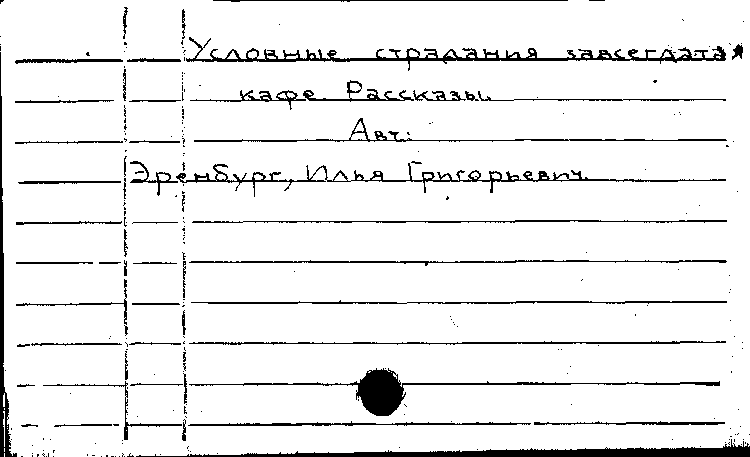 Условные страдания завсегдатая
кафе. Рассказы.
Авт.:
Эренбург, Илья Григорьевич.